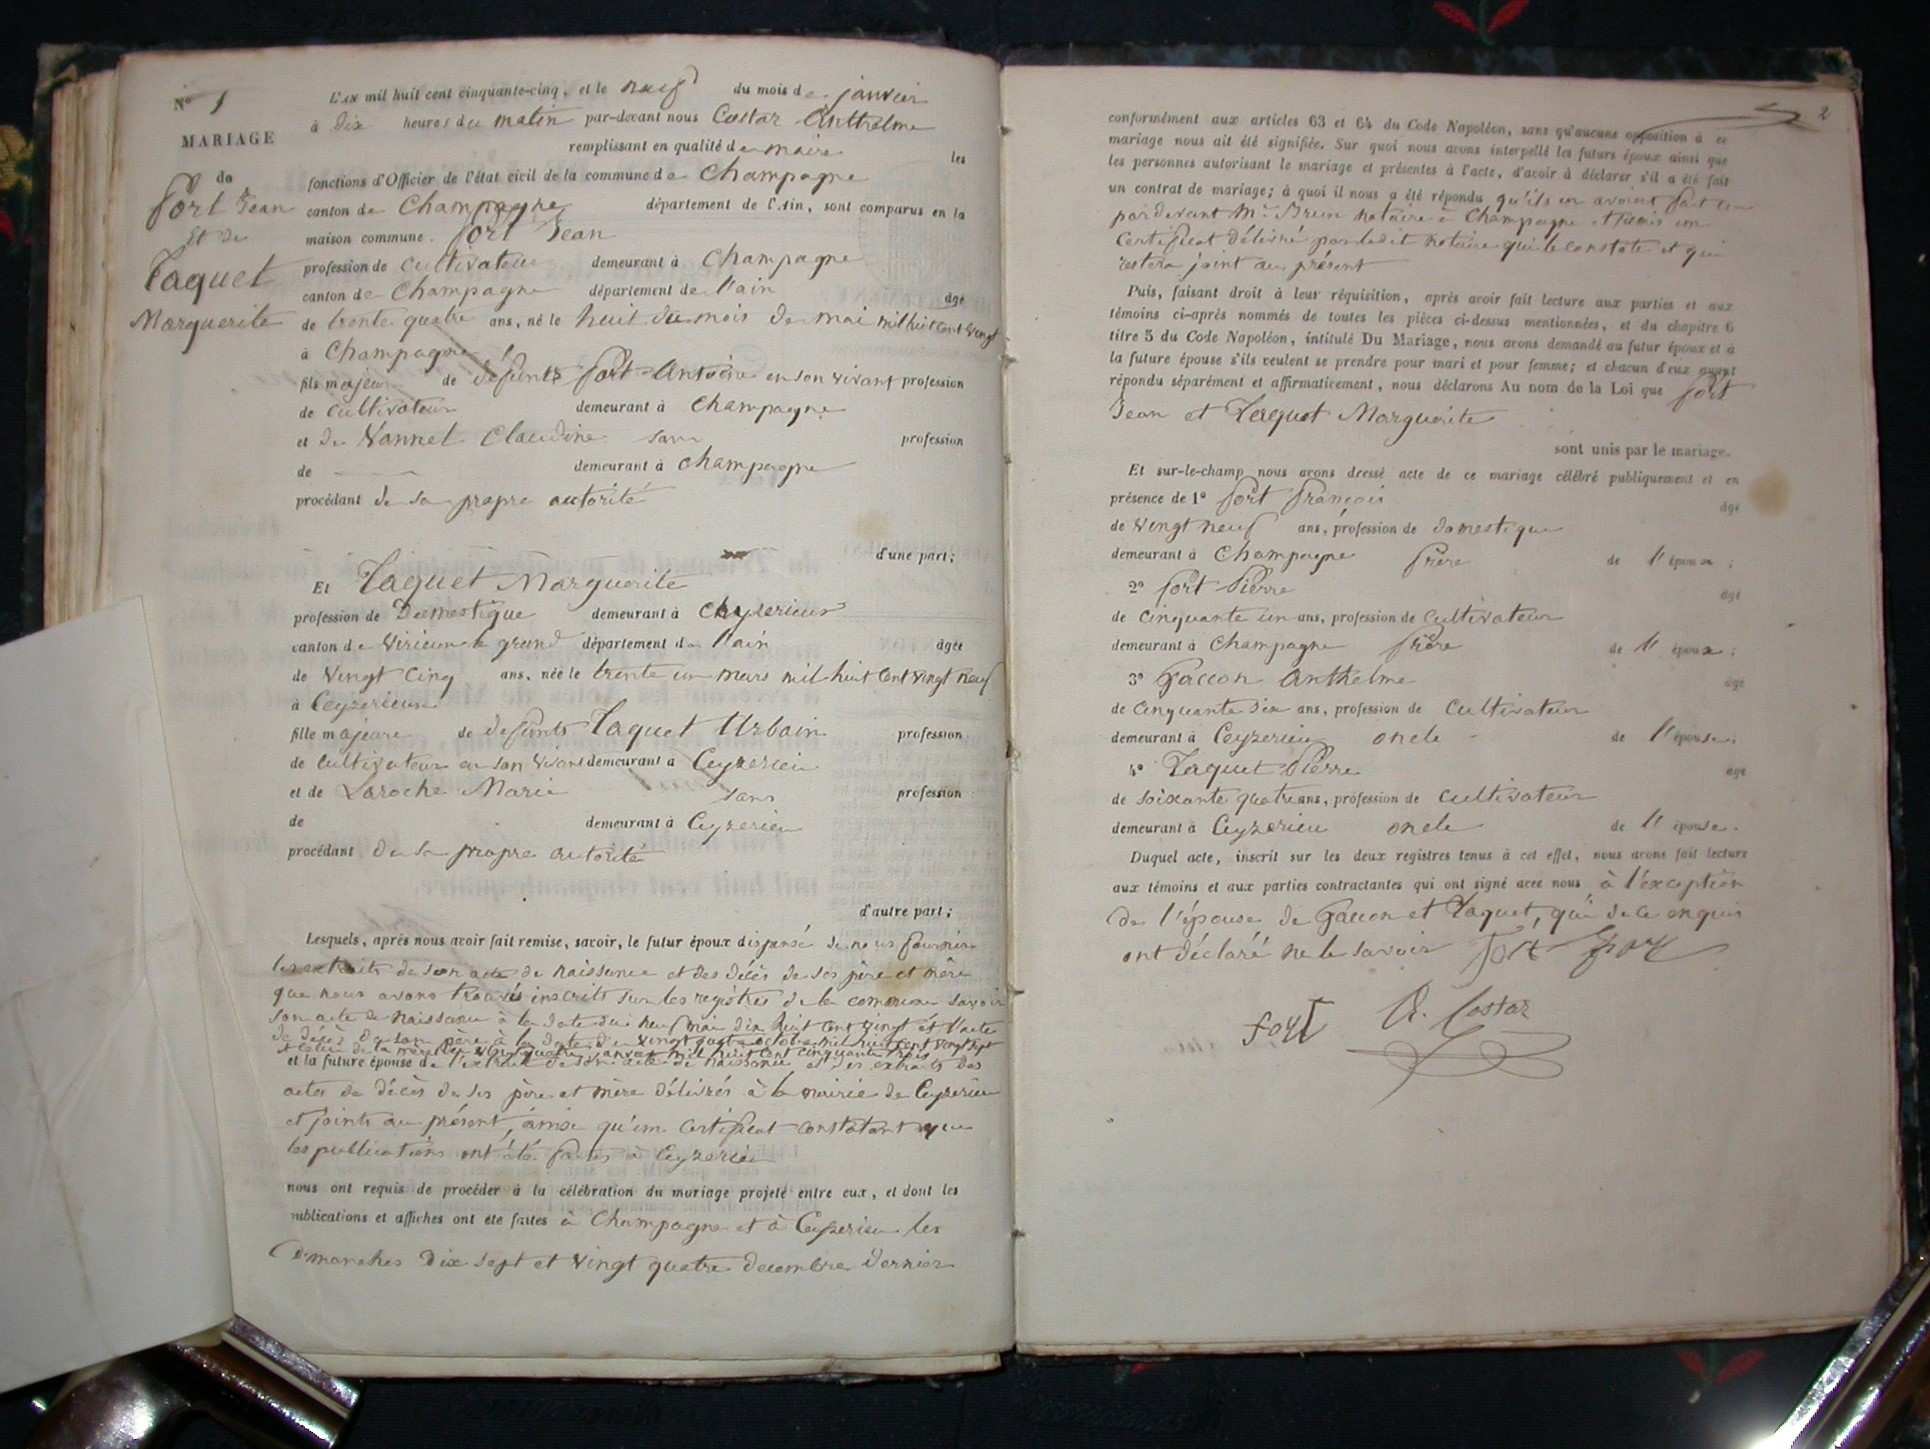 N° 1
MARIAGE
de
fort Jean
Et de
Taquet
Marguerite
L'an mil huit cent cinquante-cinq, et le neuf du mois de janvier
à dix heures du matin par-devant nous Costaz Anthelme
remplissant en qualité de maire les
fonctions d'Officier de l'état civil de la commune de Champagne
canton de Champagne département de l'Ain, sont comparus en la
maison commune. fort Jean
profession de cultivateur demeurant à Champagne
canton de Champagne département de l'ain âgé
de trente quatre ans, né le huit du mois de mai mil huit cent vingt
à Champagne
fils majeur de défunts fort Antoine en son vivant profession
de cultivateur demeurant à Champagne
et de Vannel Claudine sans profession
de demeurant à Champagne
procédant de sa propre autorité
d'une part;
Et Taquet Marguerite
profession de Domestique demeurant à Ceyzerieu
canton de Virieu le grand département de l'ain âgée
de vingt cinq ans, née le trente un mars mil huit cent vingt neuf
à Ceyzerieu
fille majeure de défunts Taquet Urbain profession
de cultivateur en son vivant demeurant à Ceyzerieu
et de Laroche Marie sans profession
de demeurant à Ceyzerieu
procédant de sa propre autorité
d'autre part;
Lesquels, après nous avoir fait remise, savoir, le futur époux dispensé de nous fournir
les extraits de son acte de naissance et des décès de ses père et mère
que nous avons trouvés inscrits sur les registres de la commune savoir
son acte de naissance à la date du neuf mai dix huit cent vingt et l'acte
de décès de son père à la date du vingt quatre octobre mil huit cent vingt sept
et celui de la mère du vingt quatre janvier mil huit cent cinquante trois
et la future épouse de l'extrait de son acte de naissance et des extraits des
actes de décès de ses père et mère délivrés à la mairie de Ceyzerieu
et joints au présent, ainsi qu'un certificat constatant que
les publications ont été faites à Ceyzerieu
nous ont requis de procéder à la célébration du mariage projeté entre eux, et dont les
publications et affiches ont été faites à Champagne et à Ceyzerieu les
Dimanches dix sept et vingt quatre decembre dernier
2
conformément aux articles 63 et 64 du Code Napoléon, sans qu'aucune opposition à ce
mariage nous ait été signifiée. Sur quoi nous avons interpellé les futurs époux ainsi que
les personnes autorisant le mariage et présentes à l'acte, d'avoir à déclarer s'il a été fait
un contrat de mariage; à quoi il nous a été répondu qu'ils en avoient fait un
par devant Mr Brun notaire à Champagne et remis un
certificat délivré par ledit notaire qui le constate et qui
restera joint au présent
Puis, faisant droit à leur réquisition, après avoir fait lecture aux parties et aux
témoins ci-après nommés de toutes les pièces ci-dessus mentionnées, et du chapitre 6
titre 5 du Code Napoléon, intitulé Du Mariage, nous avons demandé au futur époux et à
la future épouse s'ils veulent se prendre pour mari et pour femme; et chacun d'eux ayant
répondu séparément et affirmativement, nous déclarons Au nom de la Loi que fort
Jean et Taquet Marguerite
sont unis par le mariage.
Et sur-le-champ nous avons dressé acte de ce mariage célébré publiquement et en
présence de 1° fort françois âgé
de vingt neuf ans, profession de domestique
demeurant à Champagne frère de l'époux;
2° fort Pierre âgé
de cinquante un ans, profession de cultivateur
demeurant à Champagne frère de l'époux;
3° Gaccon Anthelme âgé
de cinquante dix ans, profession de cultivateur
demeurant à Ceyzerieu oncle de l'épouse;
4° Taquet Pierre âgé
de soixante quatre ans, profession de cultivateur
demeurant à Ceyzerieu oncle de l'épouse.
Duquel acte, inscrit sur les deux registres tenus à cet effet, nous avons fait lecture
aux témoins et aux parties contractantes qui ont signé avec nous à l'exception
de l'épouse de Gaccon et Taquet, qui de ce enquis
ont déclaré ne le savoir fort fort
fort A. Costaz